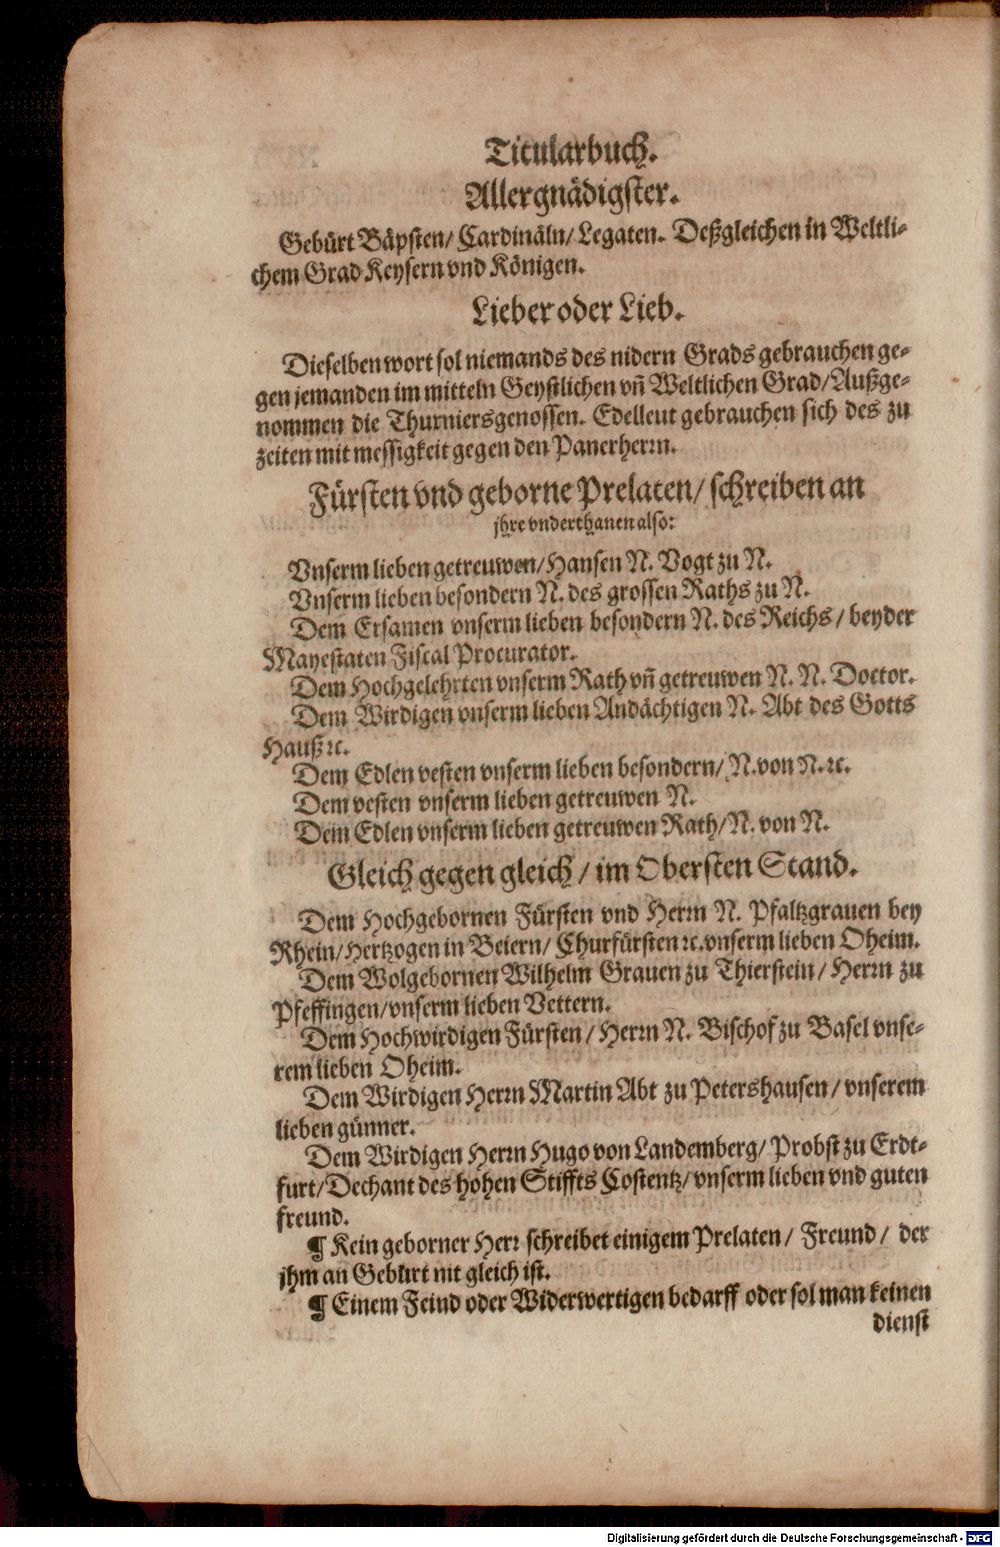 Titularbuch.
Allergnädigster.
Gebürt Bäpsten/ Cardinäln/ Legaten. Deßgleichen in Weltli-
chem Grad Keysern vnd Königen.
Lieber oder Lieb.
Dieselben wort sol niemands des nidern Grads gebrauchen ge-
gen jemanden im mitteln Geystlichen vñ Weltlichen Grad/ Außge-
nommen die Thurniersgenossen. Edelleut gebrauchen sich des zu
zeiten mit messigkeit gegen den Panerherrn.
Fürsten vnd geborne Prelaten/ schreiben an
jhre vnderthanen also:
Vnserm lieben getreuwen/ Hansen N. Vogt zu N.
Vnserm lieben besondern N. des grossen Raths zu N.
Dem Ersamen vnserm lieben besondern N. des Reichs / beyder
Mayestaten Fiscal Procurator.
Dem Hochgelehrten vnserm Rath vñ getreuwen N. N. Doctor.
Dem Wirdigen vnserm lieben Andächtigen N. Abt des Gotts
Hauß ꝛc.
Dem Edlen vesten vnserm lieben besondern/ N. von N. ꝛc.
Dem vesten vnserm lieben getreuwen N.
Dem Edlen vnserm lieben getreuwen Rath/ N. von N.
Gleich gegen gleich / im Obersten Stand.
Dem Hochgebornen Fürsten vnd Herrn N. Pfaltzgrauen bey
Rhein/ Hertzogen in Beiern/ Churfürsten ꝛc. vnserm lieben Oheim.
Dem Wolgebornen Wilhelm Grauen zu Thierstein/ Herrn zu
Pfeffingen/ vnserm lieben Vettern.
Dem Hochwirdigen Fürsten / Herrn N. Bischof zu Basel vnse-
rem lieben Oheim.
Dem Wirdigen Herrn Martin Abt zu Petershausen / vnserem
lieben günner.
Dem Wirdigen Herrn Hugo von Landemberg/ Probst zu Erdt-
furt/ Dechant des hohen Stiffts Costentz/ vnserm lieben vnd guten
freund.
¶ Kein geborner Herr schreibet einigem Prelaten / Freund / der
jhm an Geburt nit gleich ist.
¶ Einem Feind oder Widerwertigen bedarff oder sol man keinen
dienst
Digitalisierung gefördert durch die Deutsche Forschungsgemeinschaft - DFG